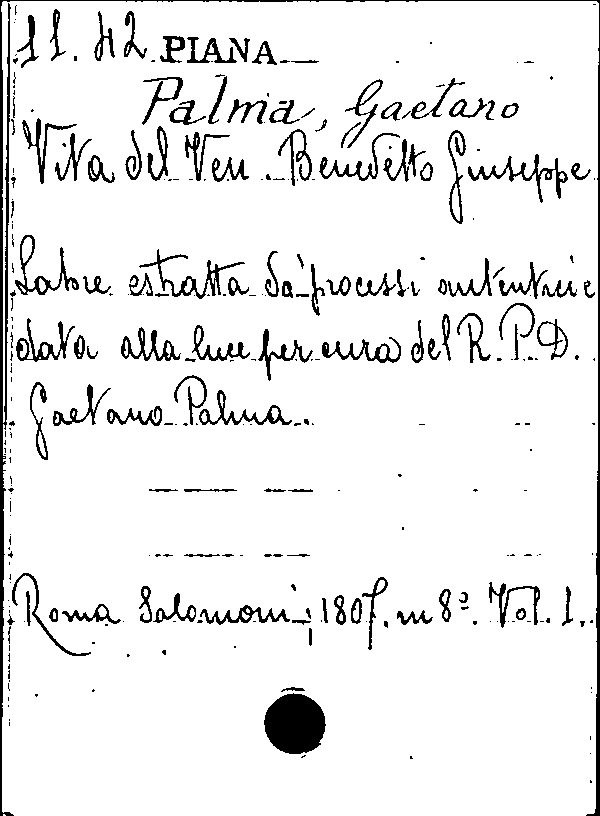 11. 42 PIANA
Palma, Gaetano
Vita del Ven. Benedetto Giuseppe
Labre estratta da' processi autentici e
data alla luce per cura del R. P. D.
Gaetano Palma.
Roma Salomoni, 1807. in 8º. Vol. 1.